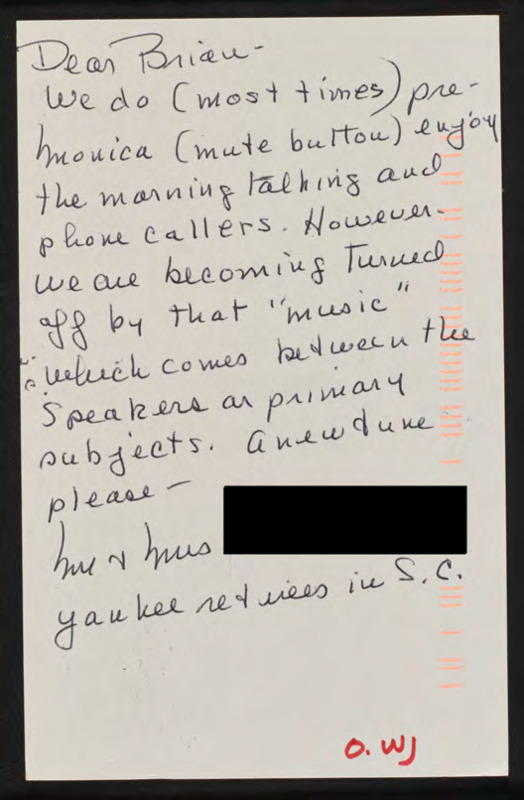 Dear Brian-
We do (most times) pre-
monica (mute button) enjoy
the morning talking and
phone callers. However-
we are becoming turned
off by that "music"
which comes between the
speakers or primary
subjects. A new tune
please-
Mr & Mrs
yankee retirees in S.C.
O. WJ